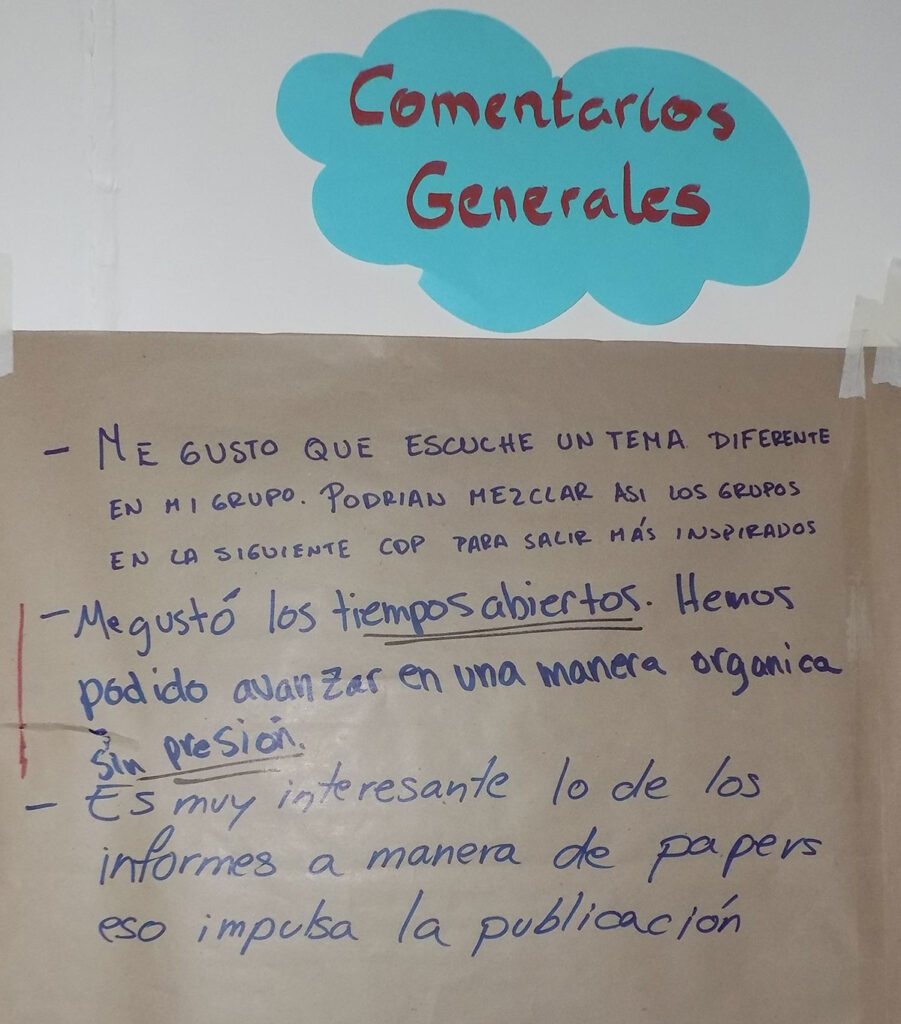 Comentarios
Generales
- ME GUSTO QUE ESCUCHE UN TEMA DIFERENTE
EN MI GRUPO. PODRIAN MEZCLAR ASI LOS GRUPOS
EN LA SIGUIENTE COP PARA SALIR MÁS INSPIRADOS
- Me gustó los tiempos abiertos. Hemos
podido avanzar en una manera organica
sin presión.
- Es muy interesante lo de los
informes a manera de papers
eso impulsa la publicación